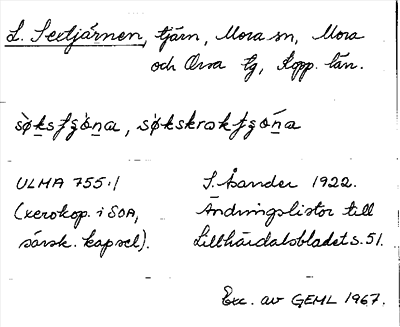 L. Sextjärnen, tjärn, Mora sn, Mora
och Orsa tg, Kopp. län.
søksʃgöna, søkskrokʃgöna
ULMA 755:1 S. Åsander 1922.
(xerokop. i SOA, Ändringslistor till
särsk. kapsel). Lillhärdalsbladet s. 51.
Exc. av GEML 1967.